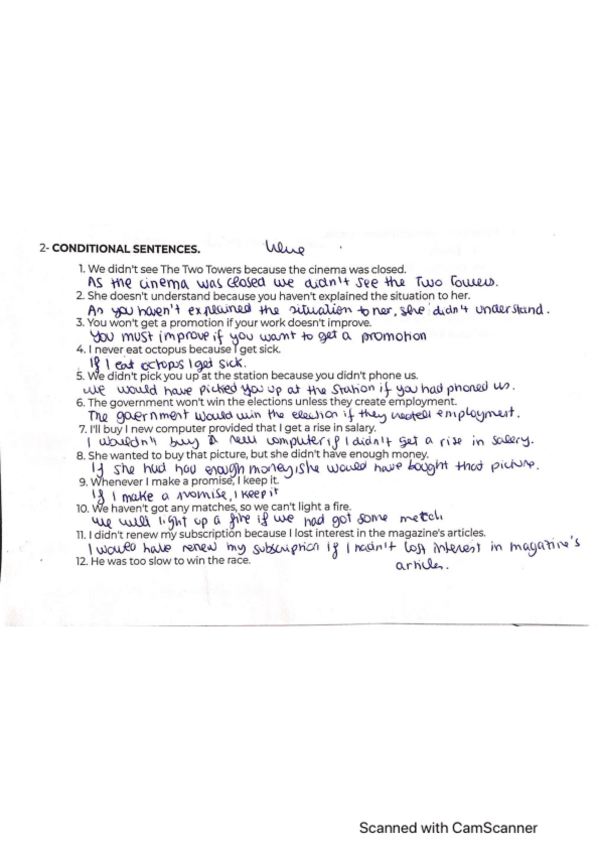 2- CONDITIONAL SENTENCES.
1. We didn't see The Two Towers because the cinema was closed.
As the cinema was closed we didn't see the Two Towers.
2. She doesn't understand because you haven't explained the situation to her.
As you haven't explained the situation to her, she didn't understand.
3. You won't get a promotion if your work doesn't improve.
You must improve if you want to get a promotion
4. I never eat octopus because I get sick.
If I eat octopus I get sick.
5. We didn't pick you up at the station because you didn't phone us.
We would have picked you up at the station if you had phoned us.
6. The government won't win the elections unless they create employment.
The government would win the election if they employment.
7. I'll buy I new computer provided that I get a rise in salary.
I wouldn't buy a new computer if I didn't get a rise in salery.
8. She wanted to buy that picture, but she didn't have enough money.
If she had had enough money, she would have bought that picture.
9. Whenever I make a promise, I keep it.
If I make a promise, I keep it
10. We haven't got any matches, so we can't light a fire.
We will light up a fire if we had got some match
11. I didn't renew my subscription because I lost interest in the magazine's articles.
I would have renew my subscription if I hadn't lost interest in magazine's
articles.
12. He was too slow to win the race.
Scanned with CamScanner